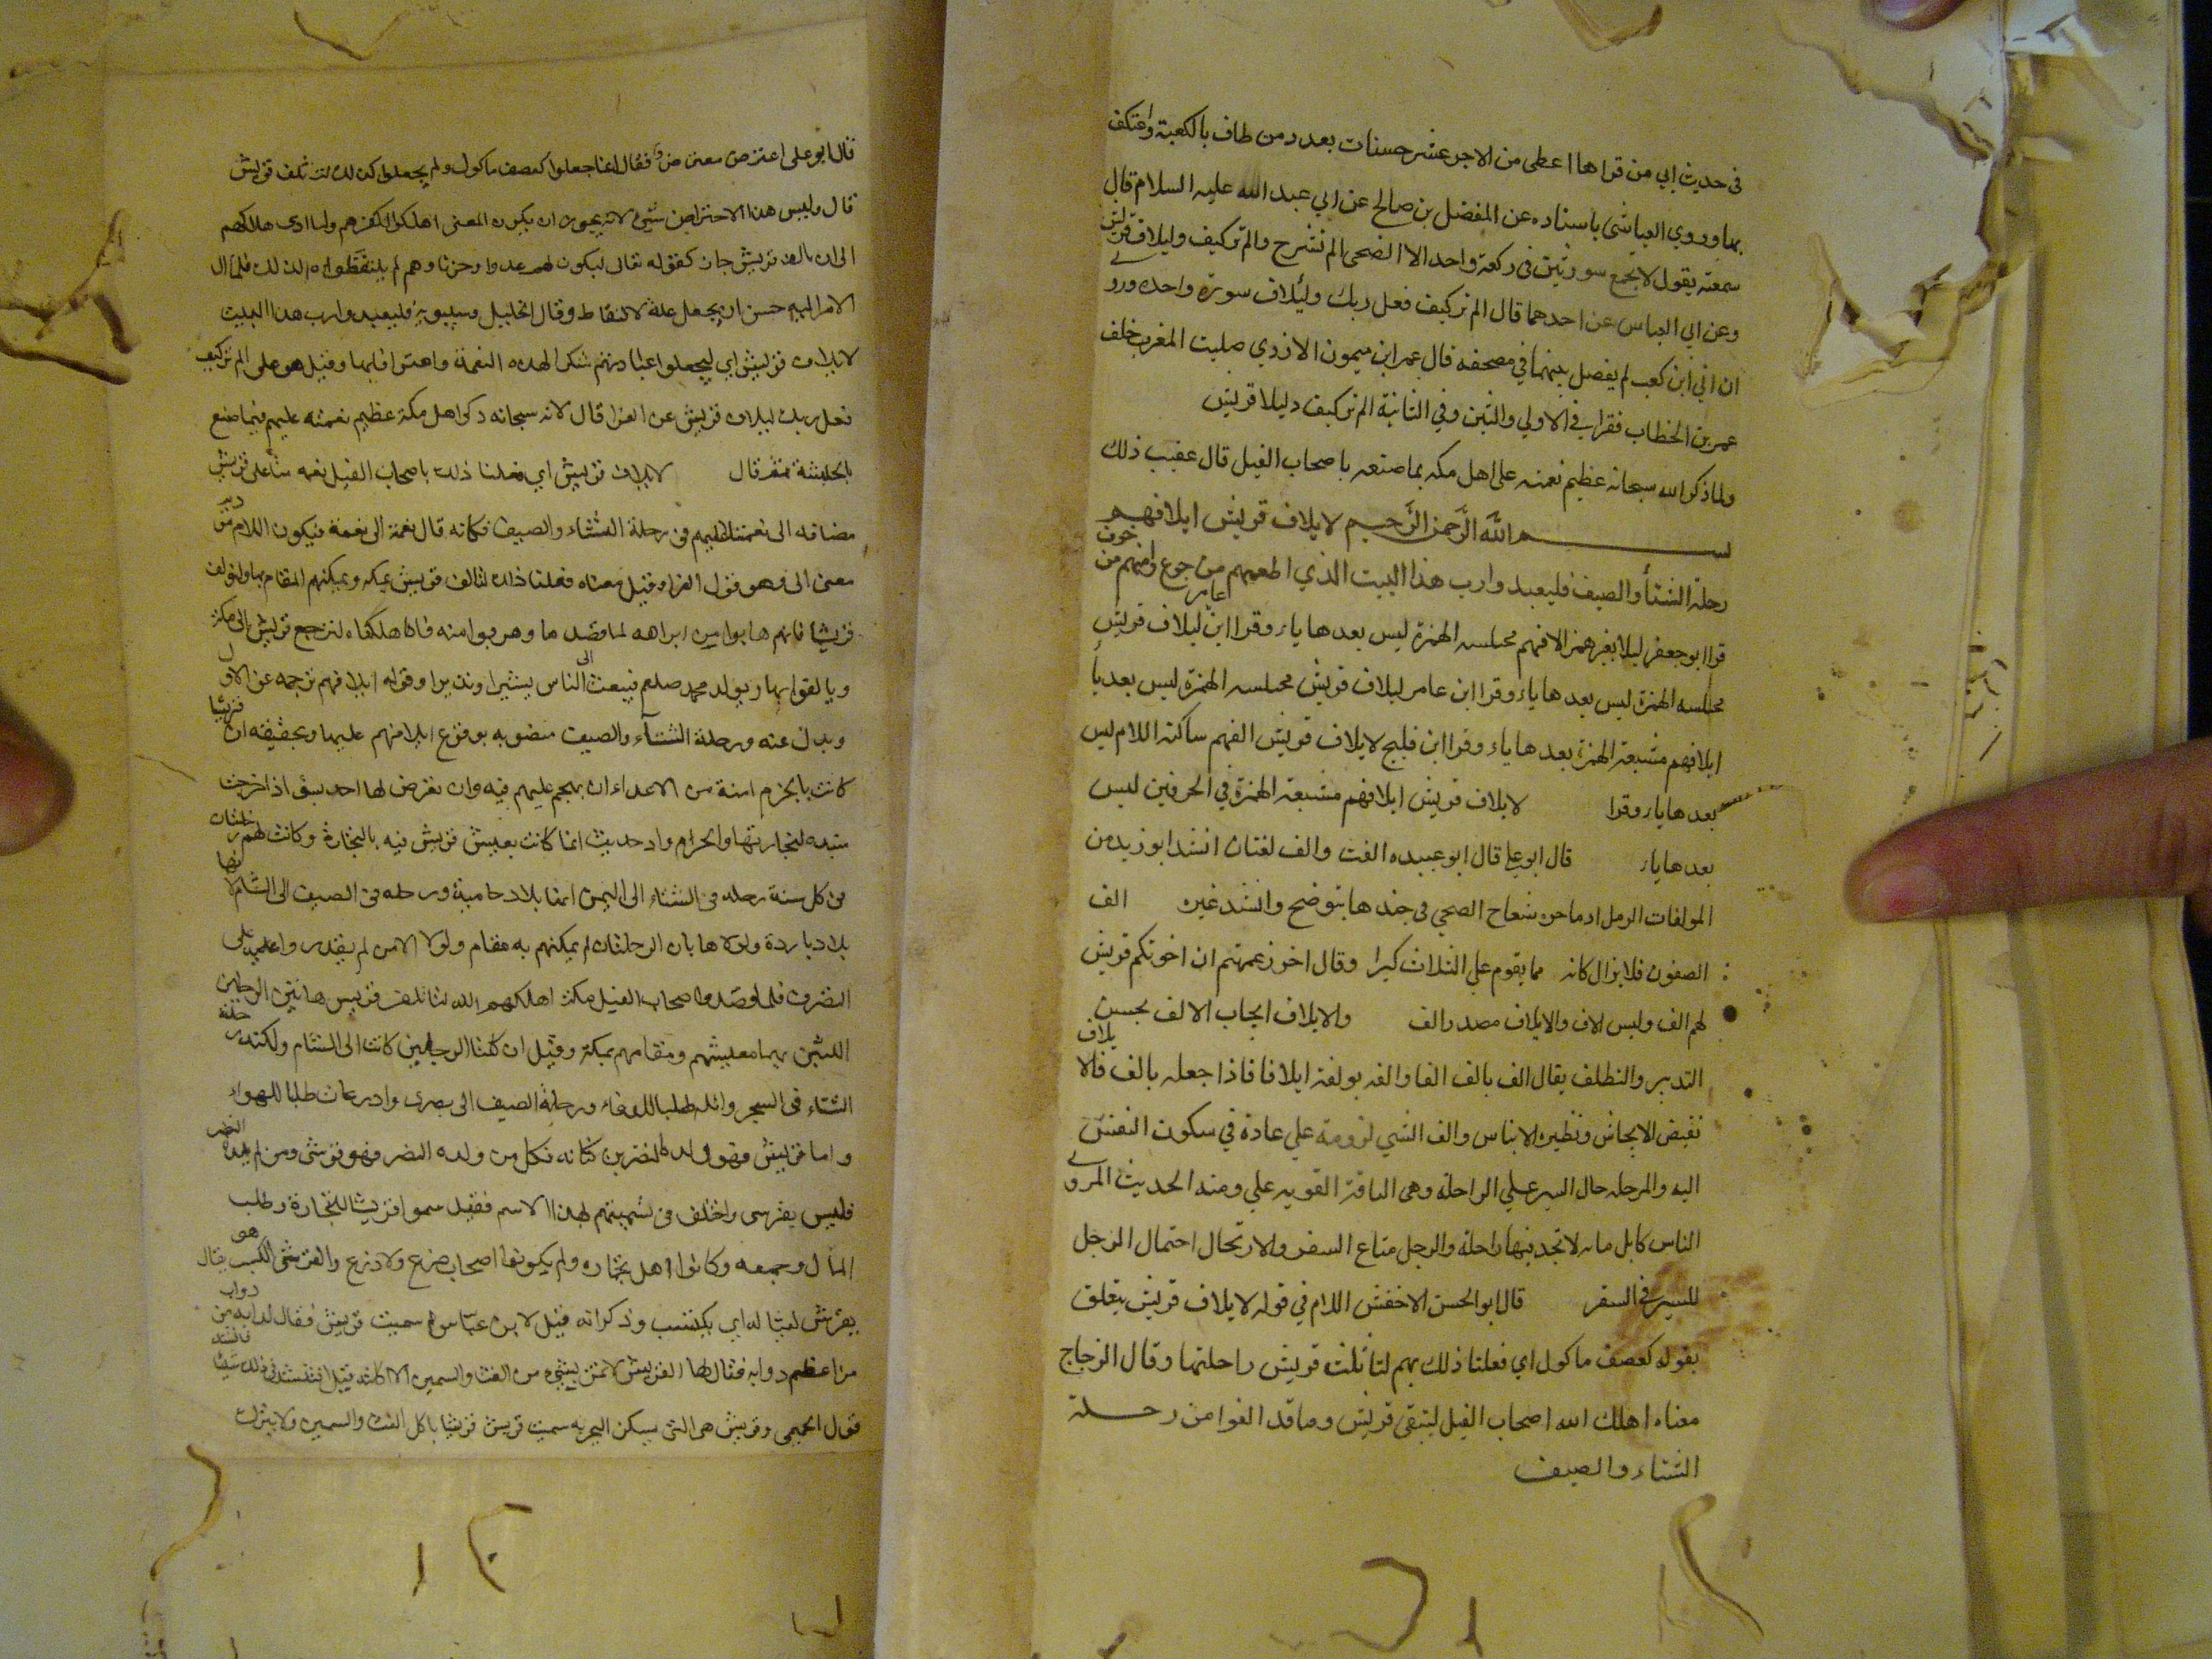 في حديث ابي من قراها اعطى من الاجر عشر حسنات بعدد من طاف بالكعبة واعتكف
بها وروي العياشي باسناده عن المفضل بن صالح عن ابي عبد الله عليه السلام قال
سمعته يقول لا يجمع سورتين في ركعة واحد الا الضحى والم نشرح والم تر كيف وليلاف قريش
وعن ابي العباس عن احدهما قال الم تر كيف فعل ربك ولئلاف سورة واحده وروى
ان ابي ابن كعب لم يفصل بينهما في مصحفه قال عمر ابن ميمون الازدي صليت المغرب خلف
عمر بن الخطاب فقرا في الاولي والتين وفي الثانية الم تر كيف و ليلا قريش
ولما ذكر الله سبحانه عظيم نعمته على اهل مكه بما صنعه باصحاب الفيل قال عقيب ذلك
بسم الله الرَّحمن الرَّحيم لايلاف قريش ايلافهم
رحلة الشتأ والصيف فليعبدوا رب هذا البيت الذي اطعمهم من جوع وامنهم من خوف
قرا ابو جعفر ليلا بغير همز الافهم مختلسه الهمزة ليس بعدها ياء وقرا ابن عامر ليلاف قريش
مختلسه الهمزة ليس بعدها ياء وقرا ابن عامر ليلاف قريش مختلسه الهمزة ليس بعد يأ
ايلافهم مشبعة الهمزة بعدها ياء وقرا ابن فليح لايلاف قريش الفهم ساكنة اللام ليس
بعدها ياء وقرا لايلاف قريش ايلافهم مشبعة الهمزة في الحرفين ليس
بعدها ياء قال ابو علي قال ابو عبيده الفت والف لغتان انشد ابو زيد من
المولفات الرمل ادما حرة شعاح الضحي في جيدها يتوضح وانشد غيره الف
الصفون فلا يزال كانه مما يقوم علي الثلاث كيرا وقال اخر زعمتم ان اخوتكم قريش
لهم الف وليس لاف والايلاف مصدر الف والايلاف ايجاب الالف بحسن
التدبير والتطلف يقال الف يالف الفا والفه يولفه ايلافا فاذا جعله يالف فالايلاف
نقيض الايحاش ونظيره الايناس والف الشي لزومه علي عادة في سكون النفس
اليه والرحله حال السير علي الراحلة وهي الناقة القويه علي ومنه الحديث المروى
الناس كابل مايه لا تجد فيها راحلة والرحل متاع السفر والارتحال احتمال الرحل
للسير في السفر قال ابو الحسن الاخفش اللام في قوله لايلاف قريش يتعلق
بقوله كعصف ماكول اي فعلنا ذلك بهم لتائلف قريش راحلتها وقال الزجاج
معناه اهلك الله اصحاب الفيل لتبقى قريش وما قد الفوا من رحلة
الشتاء والصيف
قال ابو على اعترض معترض فقال انما جعلوا كعصف ماكول ولم يجعلوا كذلك لتئلف قريش
قال وليس هذا الاعتراض شئ لانه يجوز ان يكون المعنى اهلكوا لكفرهم ولما ادى هلاكهم
الى ان يالف قريش جاز كقوله تعالى ليكون لهم عدوا وحزنا وهم لم يلتقطوه لذلك فلما ال
الامر اليه حسن ان يجعل علة لالتقاط وقال الخليل وسيبويه فليعبدوا رب هذا البيت
لايلاف قريش اي ليجعلوا عبادتهم شكرا لهذه النعمة واعترافا بها وقيل هو على الم تر كيف
فعل ربك ليلاف قريش عن الفرا قال لانه سبحانه ذكر اهل مكة عظيم نعمته عليهم فيما صنع
بالحبشة ثم قال لايلاف قريش اي فعلنا ذلك باصحاب الفيل نعمه منا على قريش
مضافه الى نعمتنا عليهم في رحلة الشتاء والصيف فكانه قال نعمة الى نعمة فيكون اللام
معنى الى وهو قول الفراء وقيل معناه فعلنا ذلك لتالف قريش بمكه ويمكنهم المقام بها
قريشا فانهم هابوا من ابراهه لما قصدها وهربوا منه فاهلكناه لترجع قريش الى مكة
ويالفوا بها ويولد محمد صلعم فيبعث الى الناس بشيرا ونذيرا وقوله ايلافهم ترجمه عن الاول
وبدل عنه ورحلة الشتآء والصيف منصوبه بوقوع ايلافهم عليها وتحقيقه ان قريشا
كانت بالحرم امنة من الاعداء ان يهجم عليهم فيه وان يعرض لها احد بسوء اذا خرجت
منه لتجارتها والحرام واد جديب انما كانت يعيش قريش فيه بالتجارة وكانت لهم رحلتان
في كل سنة رحله في الشتاء الى اليمن لانها بلاد حامية ورحله في الصيف الى الشام لانها
بلاد باردة ولولا هاتان الرحلتان لم يمكنهم به مقام ولولا الامن لم يقدروا على
التصرف فلما قصدوا اصحاب الفيل مكة اهلكهم الله لتائلف قريش هاتين الرحلتين
اللتين بهما معيشتهم ومقامهم بمكة وقيل ان كلتا الرحلتين كانت الى الشام ولكن رحلة
الشتاء في البحر وايلة طلبا للدفاء ورحلة الصيف الى بصرى واذرعات طلبا للهواء
واما قريش فهو ولد النضر بن كنانه فكل من ولده النضر فهو قرشى ومن لم يلده النضر
فليس بقرشى واختلف في تسميتهم لهذا الاسم فقيل سموا قريشا للتجارة وطلب
المال وجمعه وكانوا اهل تجاره ولم يكونوا اصحاب ضرع ولا زرع والقرش هو الكسب يقال
يقرش لعياله اي يكتسب وذكر انه قيل لابن عبّاس لم سميت قريش فقال لدابه من
من اعظم دوابه فقال لها القريش لا تمر بشيء من الغث والسمين الا اكلته قيل افتنشد في ذلك شيئا
قول الحميري وقريش هي التي يسكن البحر به سميت قريش قريشا ياكل الغث والسمين ولا يترك